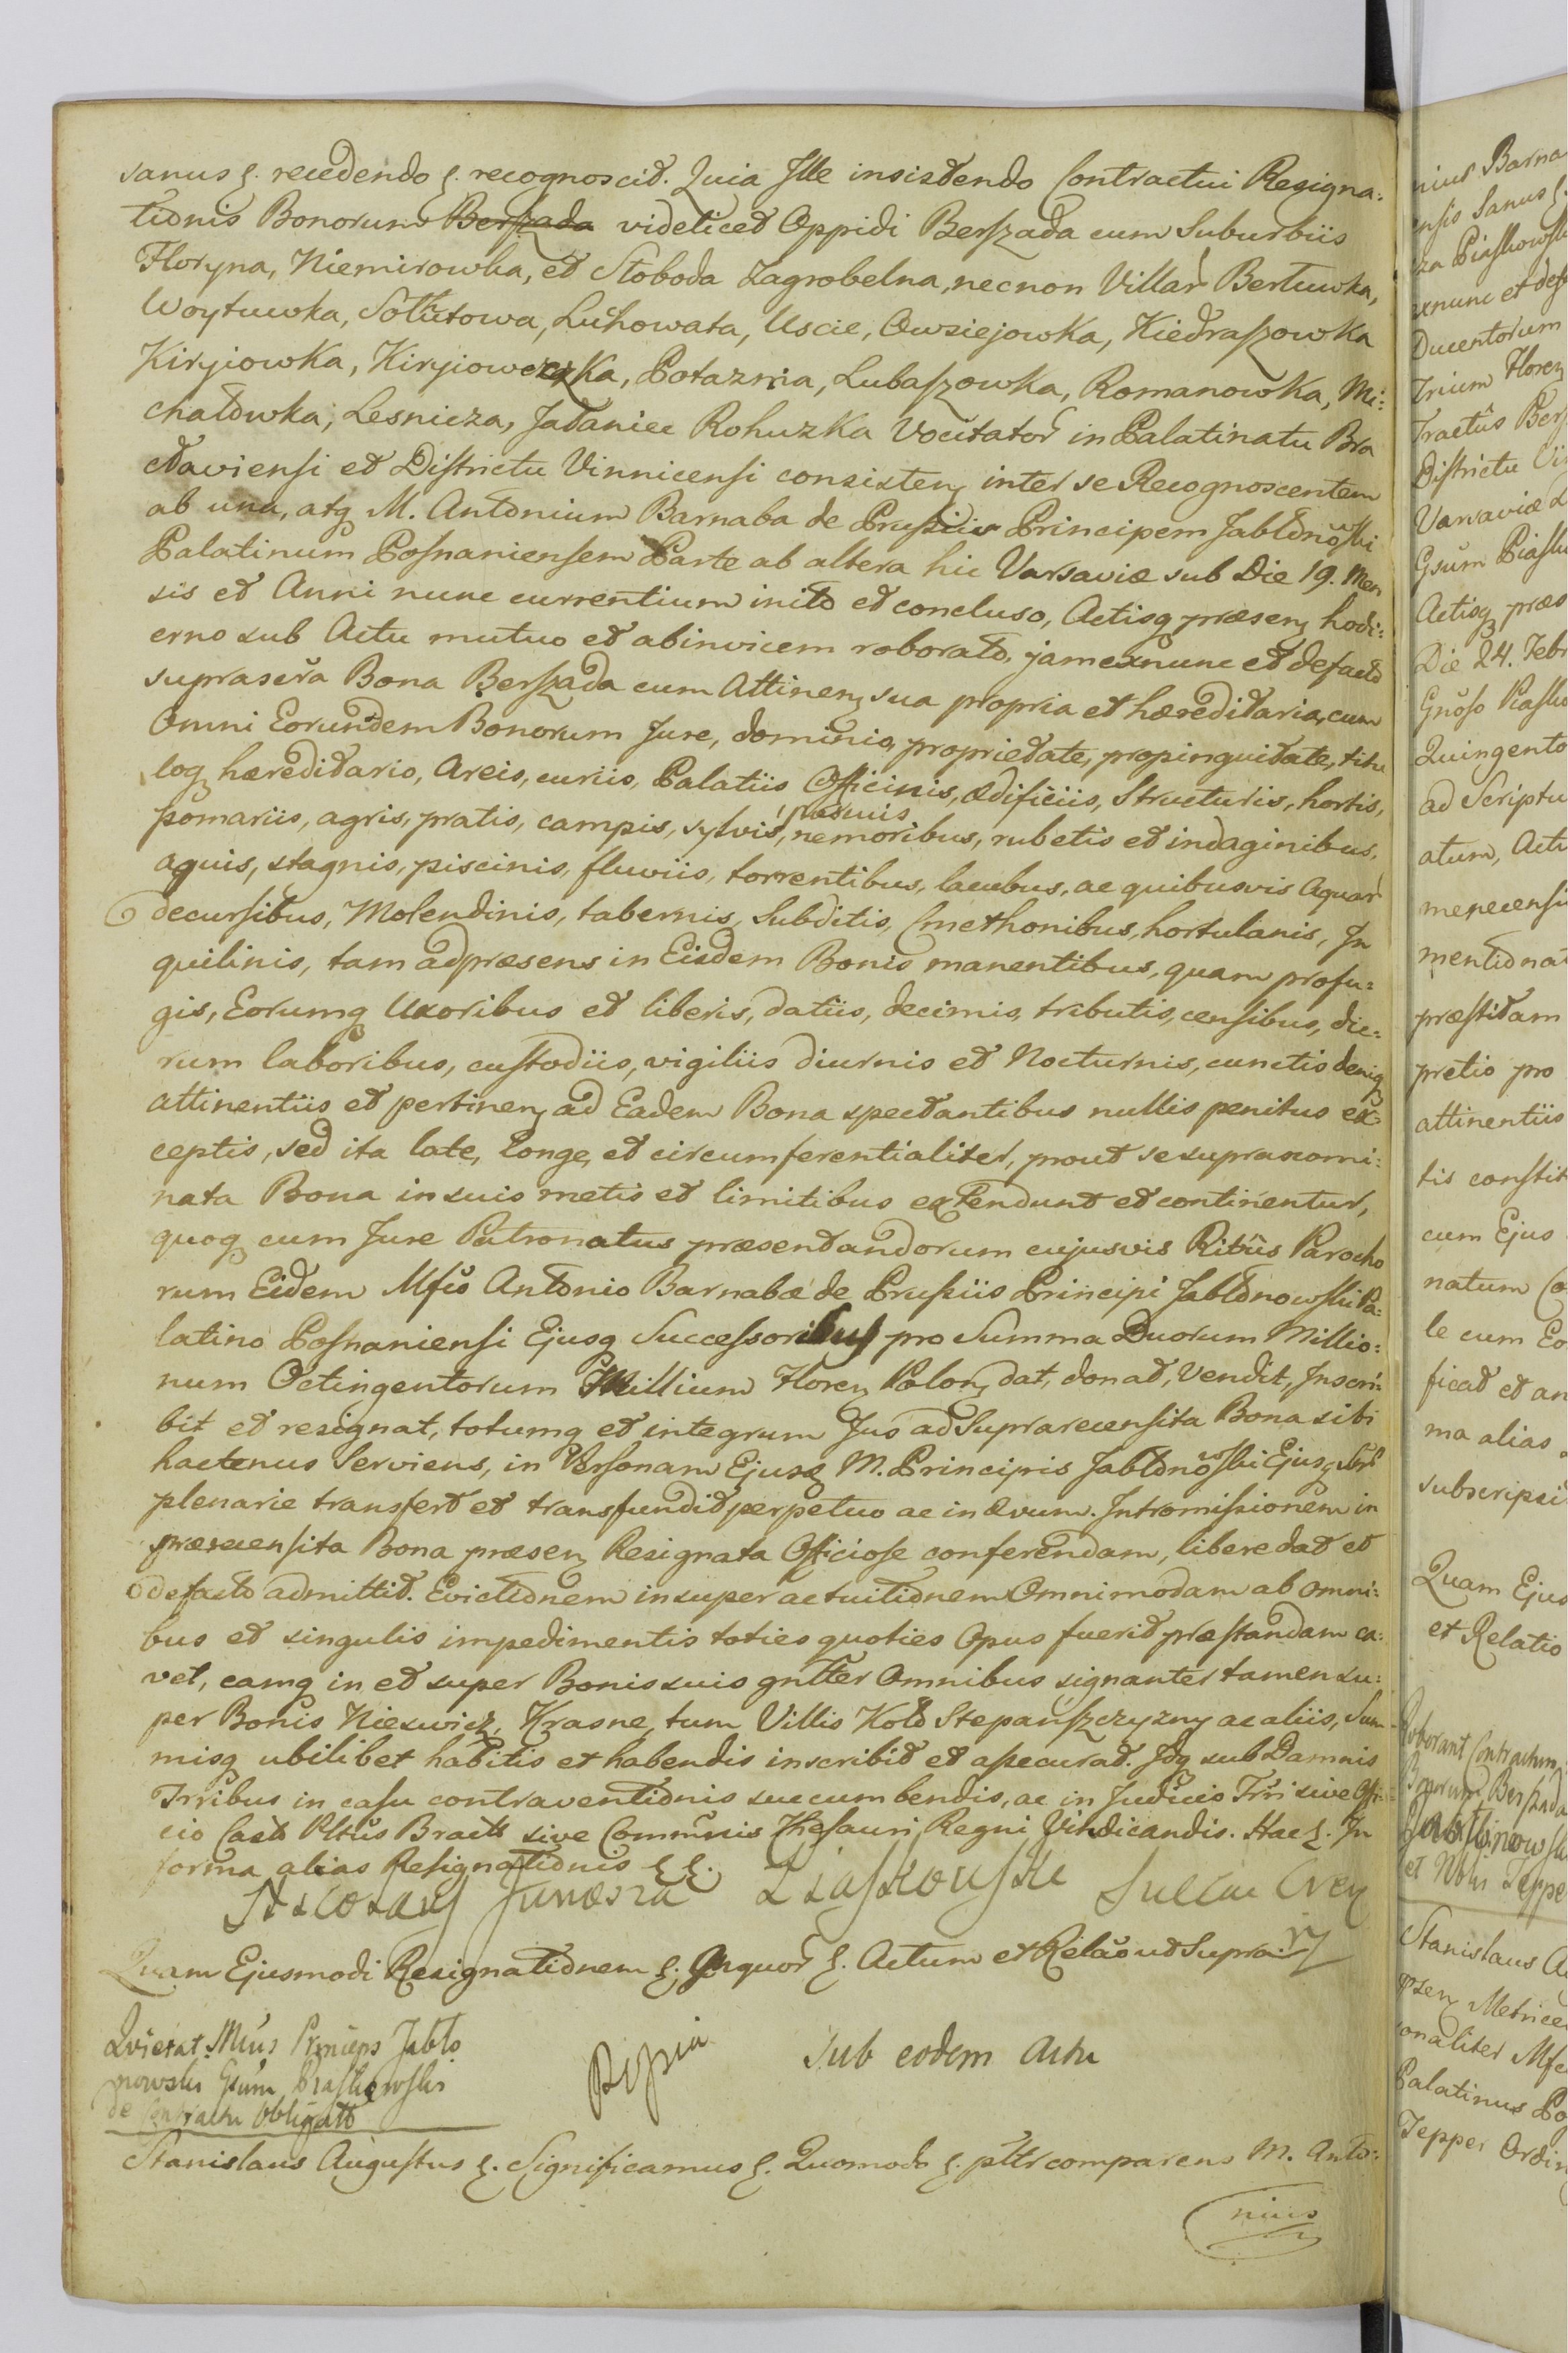 sanus ξ. recedendo ξ. recognoscit. Quia Ille insistendo Contractui Resigna:
tionis Bonorum Berszada videlicet Oppidi Berszada cum Suburbiis
Floryna, Niemirowka, et Sloboda Zagrobelna, necnon Villar Bertuwka,
Woytuwka, Sollutowa, Luhowata, Uscie, Owsiejowka, Kiedraszowka
Kiryiowka, Kiryioweczka, Potaznia, Lubaszowka, Romanowka, Mi:
chałowka, Lesnicza, Jałaniec Rohuzka Vocitator in Palatinatu Bra
claviensi et Districtu Vinnicensi consisten, inter se Recognoscentem
ab una, atq M. Antonium Barnaba de Prussiis Principem Jabłonoski
Palatinum Posnaniensem Parte ab altera hic Varsaviæ sub Die 19. Men
sis et Anni nunc currentium inito et concluso, Actisq præsen, hodi:
erno sub Actu mutuo et abinvicem roborato, jam exnunc et defacto
suprascra Bona Berszada cum Attinen, sua propria et hæreditaria, cum
Omni Eorundem Bonorum Jure, dominio, proprietate, propinquitate, titu
loq hæreditario, Areis, curiis, Palatiis Officinis, ædificiis, Structuris, hortis,
pomariis, agris, pratis, campis, sylvis, pascuis nemoribus, rubetis et indaginibus,
aquis, stagnis, piscinis, fluviis, torrentibus, lacubus, ac quibusvis Aquar
decursibus, Molendinis, tabernis, Subditis, Cmethonibus, hortulanis, In
quilinis, tam adpræsens in Eisdem Bonis manentibus, quam profu:
gis, Eorumq Uxoribus et liberis, datiis, decimis, tributis, censibus, die:
rum laboribus, custodiis, vigiliis diurnis et Nocturnis, cunctis deniq
attinentiis et pertinen, ad Eadem Bona spectantibus nullis penitus ex
ceptis, sed ita late, longe, et circumferentialiter, prout se supranomi:
nata Bona in suis metis et limitibus extendunt et continentur,
quoq cum Jure Patronatus præsentandorum cujusvis Ritus Parocho
rum Eidem Mfco Antonio Barnabæ de Prussiis Principi Jabłonowski Pa:
latino Posnaniensi Ejusq Successoribus pro Summa Duorum Millio:
num Octingentorum Millium Floren, Polon, dat, donat, Vendit, Inscri
bit et resignat, totumq et integrum Jus ad Suprarecensita Bona sibi
hactenus Serviens, in Personam Ejusq M. Principis Jabłonoski Ejusq
plenarie transfert et transfundit perpetuo ac in ævum. Intromissionem in
prærecensita Bona præsen, Resignata Officiose conferendam, libere dat et
defacto admittit. Evictionem insuper ac tuitionem Omnimodam ab omni:
bus et singulis impedimentis toties quoties Opus fuerit præstandam ca:
vet, eamq in et super Bonis suis gnlter Omnibus signanter tamen su:
per Bonis Niezwicz, Krasne, tum Villis Stepanszczyzny ac aliis, Sum
misq ubilibet habitis et habendis inscribit et assecurat. Idq sub Damnis
Trribus in casu contraventionis succumbendis, ac in Judicio Trri sive Offi
cio Castr Pltus Braclt sive Communis Thesauri Regni Vindicandis. Hac ξ. In
forma alias Resignationis ξξ.
Junosza Piaskowski
Quam Ejusmodi Resignationem ξ. Inquor ξ. Actum et Relaõ ut Supra.
Quietat Mfcus Princeps Jabło
nowski Gsum Piaskowski
de Contractu Obligatt
Sub eodem Actu
Stanislaus Augustus ξ. Significamus ξ. Quomodo ξ. pltr comparens M. Anto:
nius
nius Barna
ensis Sanus ξ.
Piaskowski
exnunc et defa
Ducentorum
Trium Floren
Tractûs Bers
Districtu Vi
Varsaviæ
Gsum Piasko
Actisq præs
Die 24. Febr
Gnoso Piasko
Quingento
ad Scriptu
atum, Actu
mentionat
præstitam
pretio pro
attinentiis
tis constit
cum Ejus
natum Co
le cum Eo
ficat et an
ma alias
subscripsi
Quam Ejus
et Relatio
Roborant Contractum
Bonorum Berszada
Jabłonowski
et Nobi Tepper
Stanislaus Au
psen, Metrice
sonaliter Mfc
Palatinus Po
Tepper Ordin